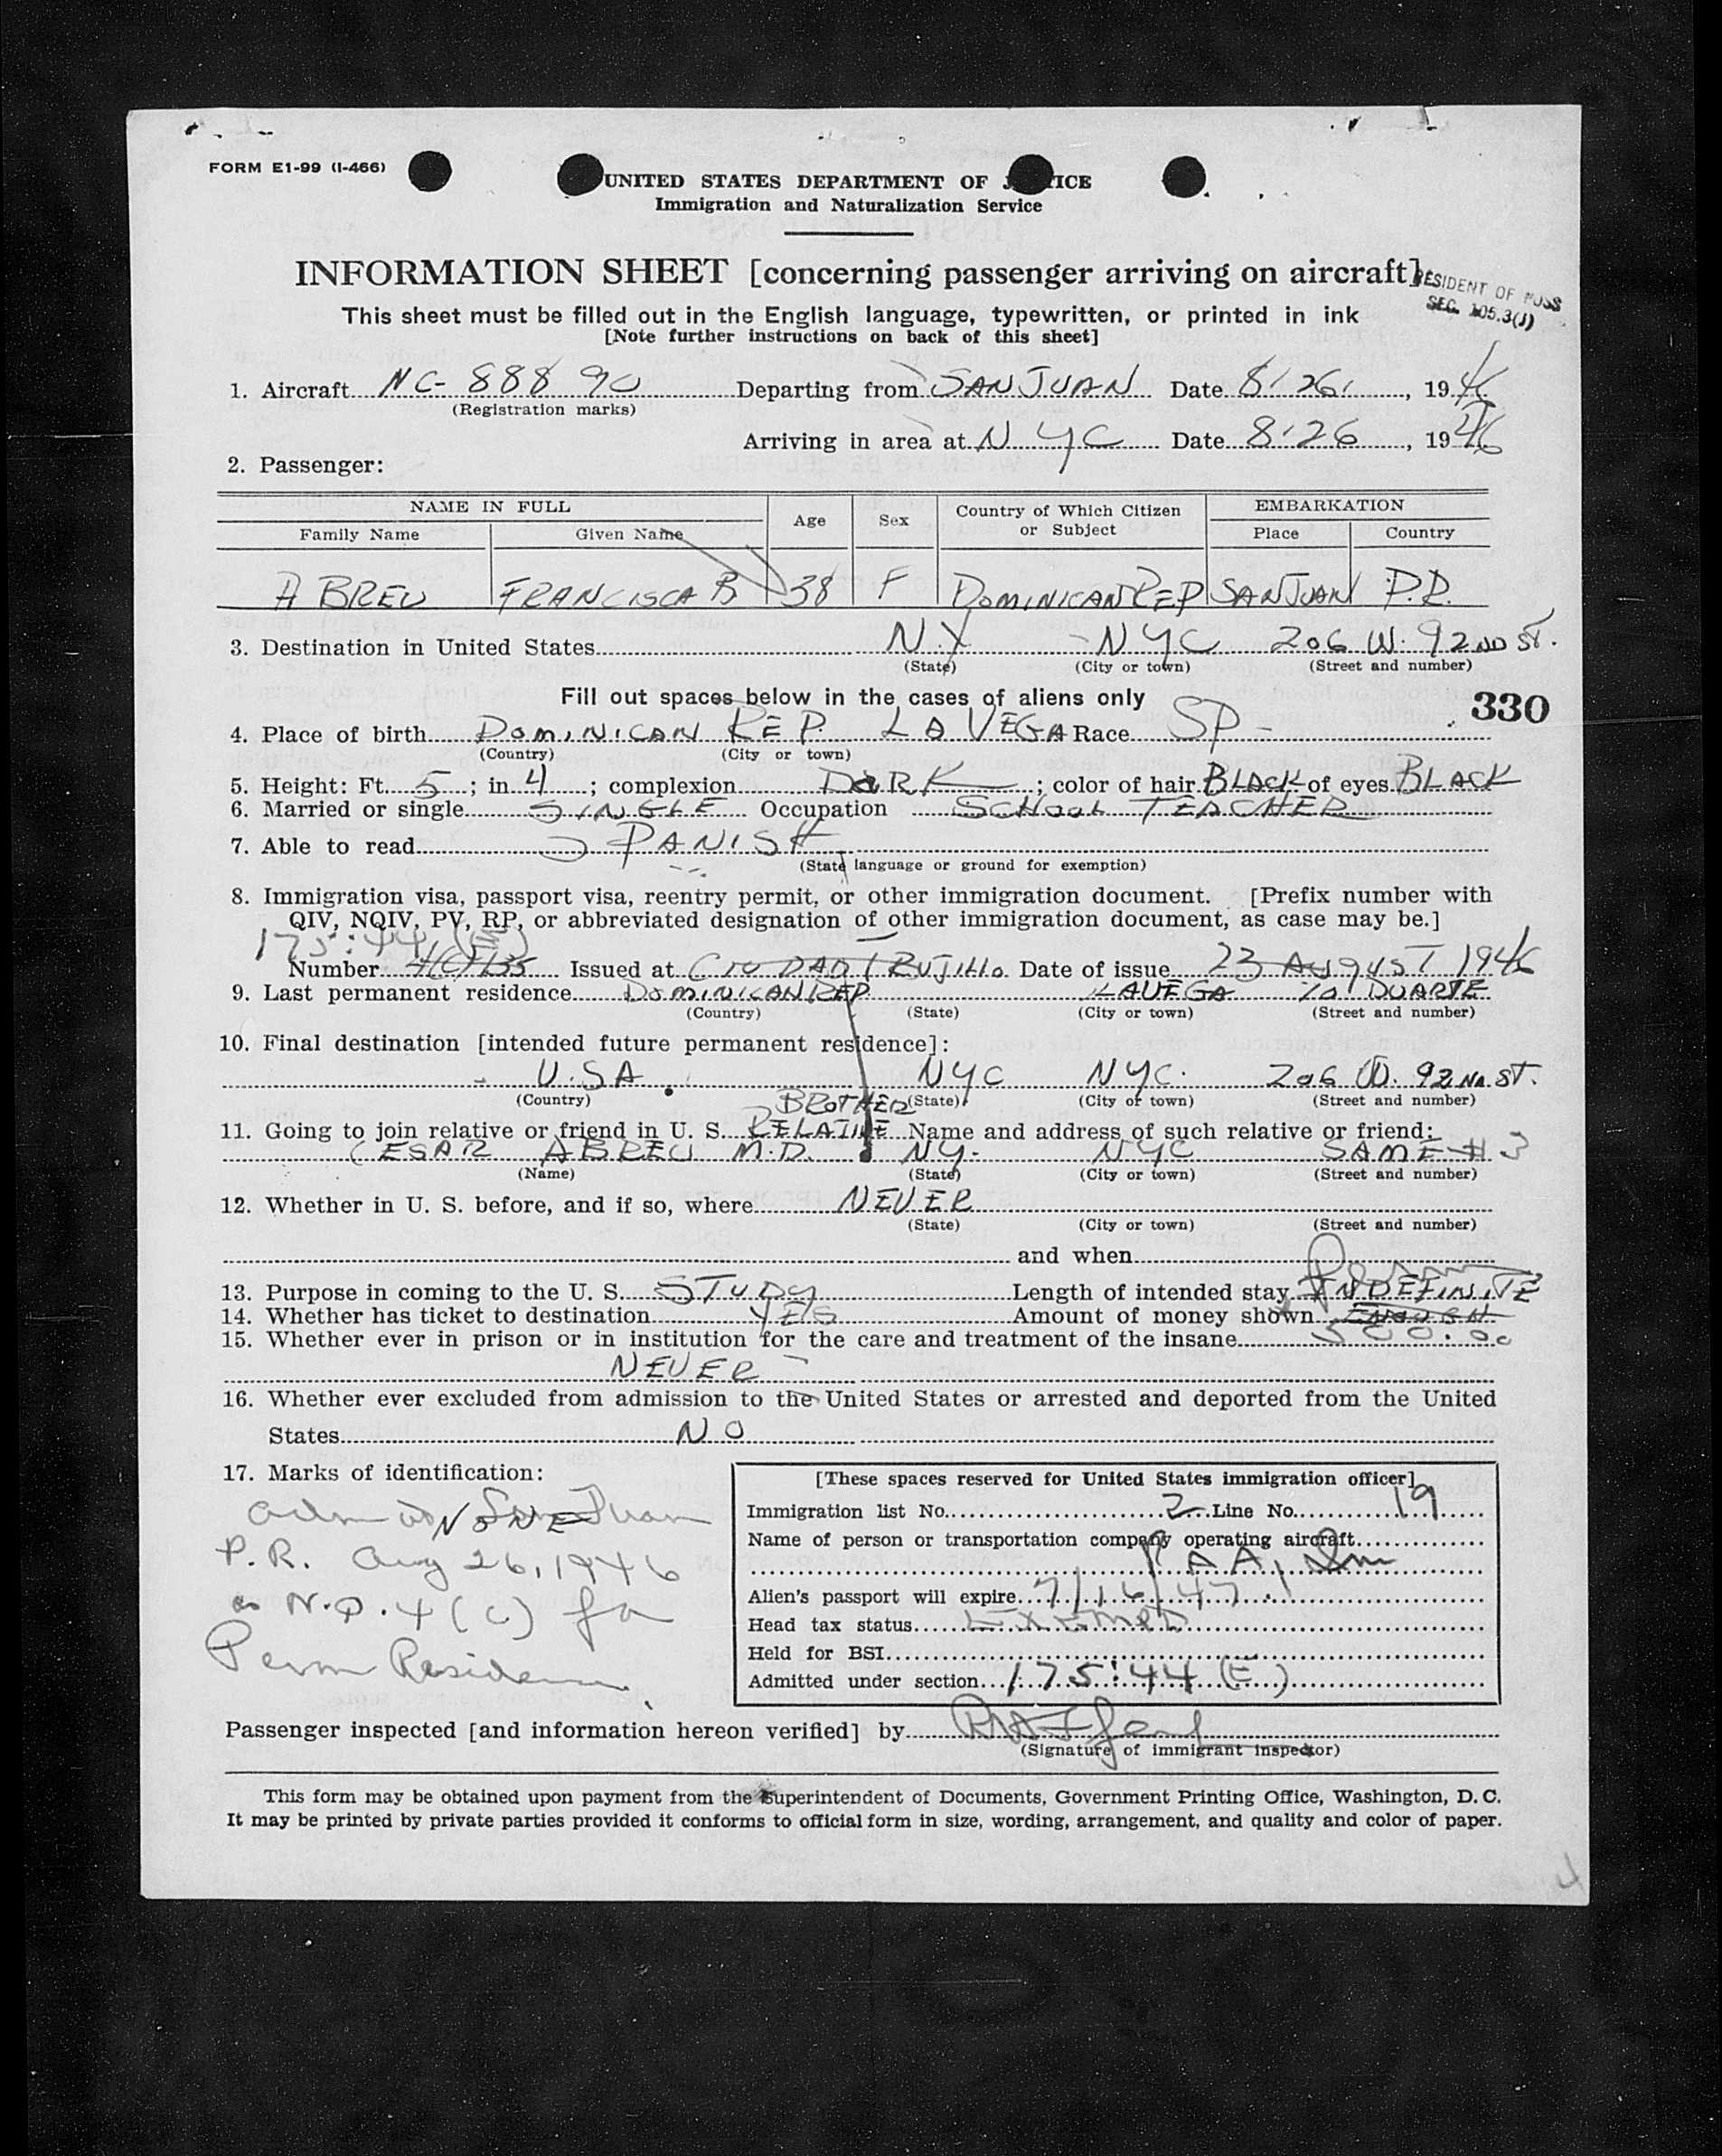 FORM E1-99 (I-466)
UNITED STATES DEPARTMENT OF J TICE
Immigration and Naturalization Service
INFORMATION SHEET [concerning passenger arriving on aircraft]
RESIDENT OF POSS
SEC. 105.3(J)
This sheet must be filled out in the English language, typewritten, or printed in ink
[Note further instructions on back of this sheet]
1. Aircraft NC- 88890 Departing from SAN JUAN Date 8/26, 1946
(Registration marks)
Arriving in area at NYC Date 8.26, 1946
2. Passenger:
NAME IN FULL Age Sex Country of Which Citizen or Subject EMBARKATION
Family Name Given Name Place Country
ABREU FRANCISCA B 38 F DOMINICAN REP SAN JUAN P.R.
3. Destination in United States N.Y NYC 206 W. 92ND ST.
(State) (City or town) (Street and number)
Fill out spaces below in the cases of aliens only
330
4. Place of birth DOMINICAN REP. LA VEGA Race SP-
(Country) (City or town)
5. Height: Ft. 5; in. 4; complexion DARK; color of hair BLACK of eyes BLACK
6. Married or single SINGLE Occupation SCHOOL TEACHER
7. Able to read SPANISH
(State language or ground for exemption)
8. Immigration visa, passport visa, reentry permit, or other immigration document. [Prefix number with
QIV, NQIV, PV, RP, or abbreviated designation of other immigration document, as case may be.]
175:44 (E)
Number 4(C) 135 Issued at CIUDAD TRUJILLO Date of issue 23 AUGUST 1946
9. Last permanent residence DOMINICAN REP LAVEGA 10 DUARTE
(Country) (State) (City or town) (Street and number)
10. Final destination [intended future permanent residence]:
U.S.A. NYC NYC. 206 W. 92ND ST.
(Country) (State) (City or town) (Street and number)
BROTHER
11. Going to join relative or friend in U. S. RELATIVE Name and address of such relative or friend:
CESAR ABREU M.D. NY. NYC SAME # 3
(Name) (State) (City or town) (Street and number)
12. Whether in U. S. before, and if so, where NEVER
(State) (City or town) (Street and number)
and when
Perm
13. Purpose in coming to the U. S. STUDY Length of intended stay INDEFINITE
14. Whether has ticket to destination YES Amount of money shown ENOUGH
15. Whether ever in prison or in institution for the care and treatment of the insane 500.00
NEVER
16. Whether ever excluded from admission to the United States or arrested and deported from the United
States NO
17. Marks of identification:
NONE
Adm at San Juan
P.R. Aug 26, 1946
as N.Q. 4 (C) for
Perm Residence.
[These spaces reserved for United States immigration officer]
Immigration list No. 2 Line No. 19
Name of person or transportation company operating aircraft
PAA,
Alien's passport will expire 7/16/47
Head tax status Exempt
Held for BSI
Admitted under section 175:44 (E)
Passenger inspected [and information hereon verified] by
(Signature of immigrant inspector)
This form may be obtained upon payment from the Superintendent of Documents, Government Printing Office, Washington, D. C.
It may be printed by private parties provided it conforms to official form in size, wording, arrangement, and quality and color of paper.